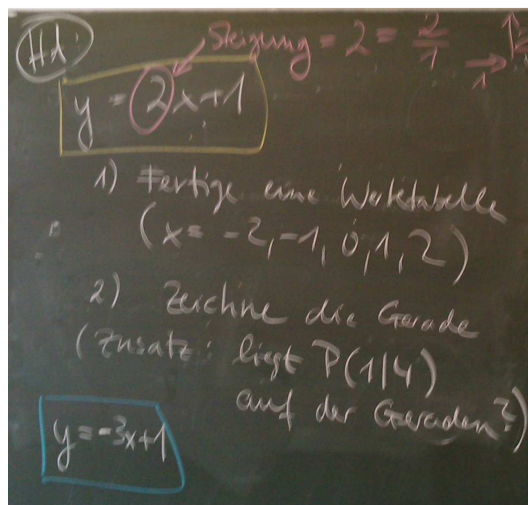 HA: Steigung = 2 = 2/1 → 1 ↑ 2
y = 2x+1
1) Fertige eine Wertetabelle
(x = -2, -1, 0, 1, 2)
2) Zeichne die Gerade
(Zusatz: liegt P(1|4)
auf der Geraden?)
y = -3x+1